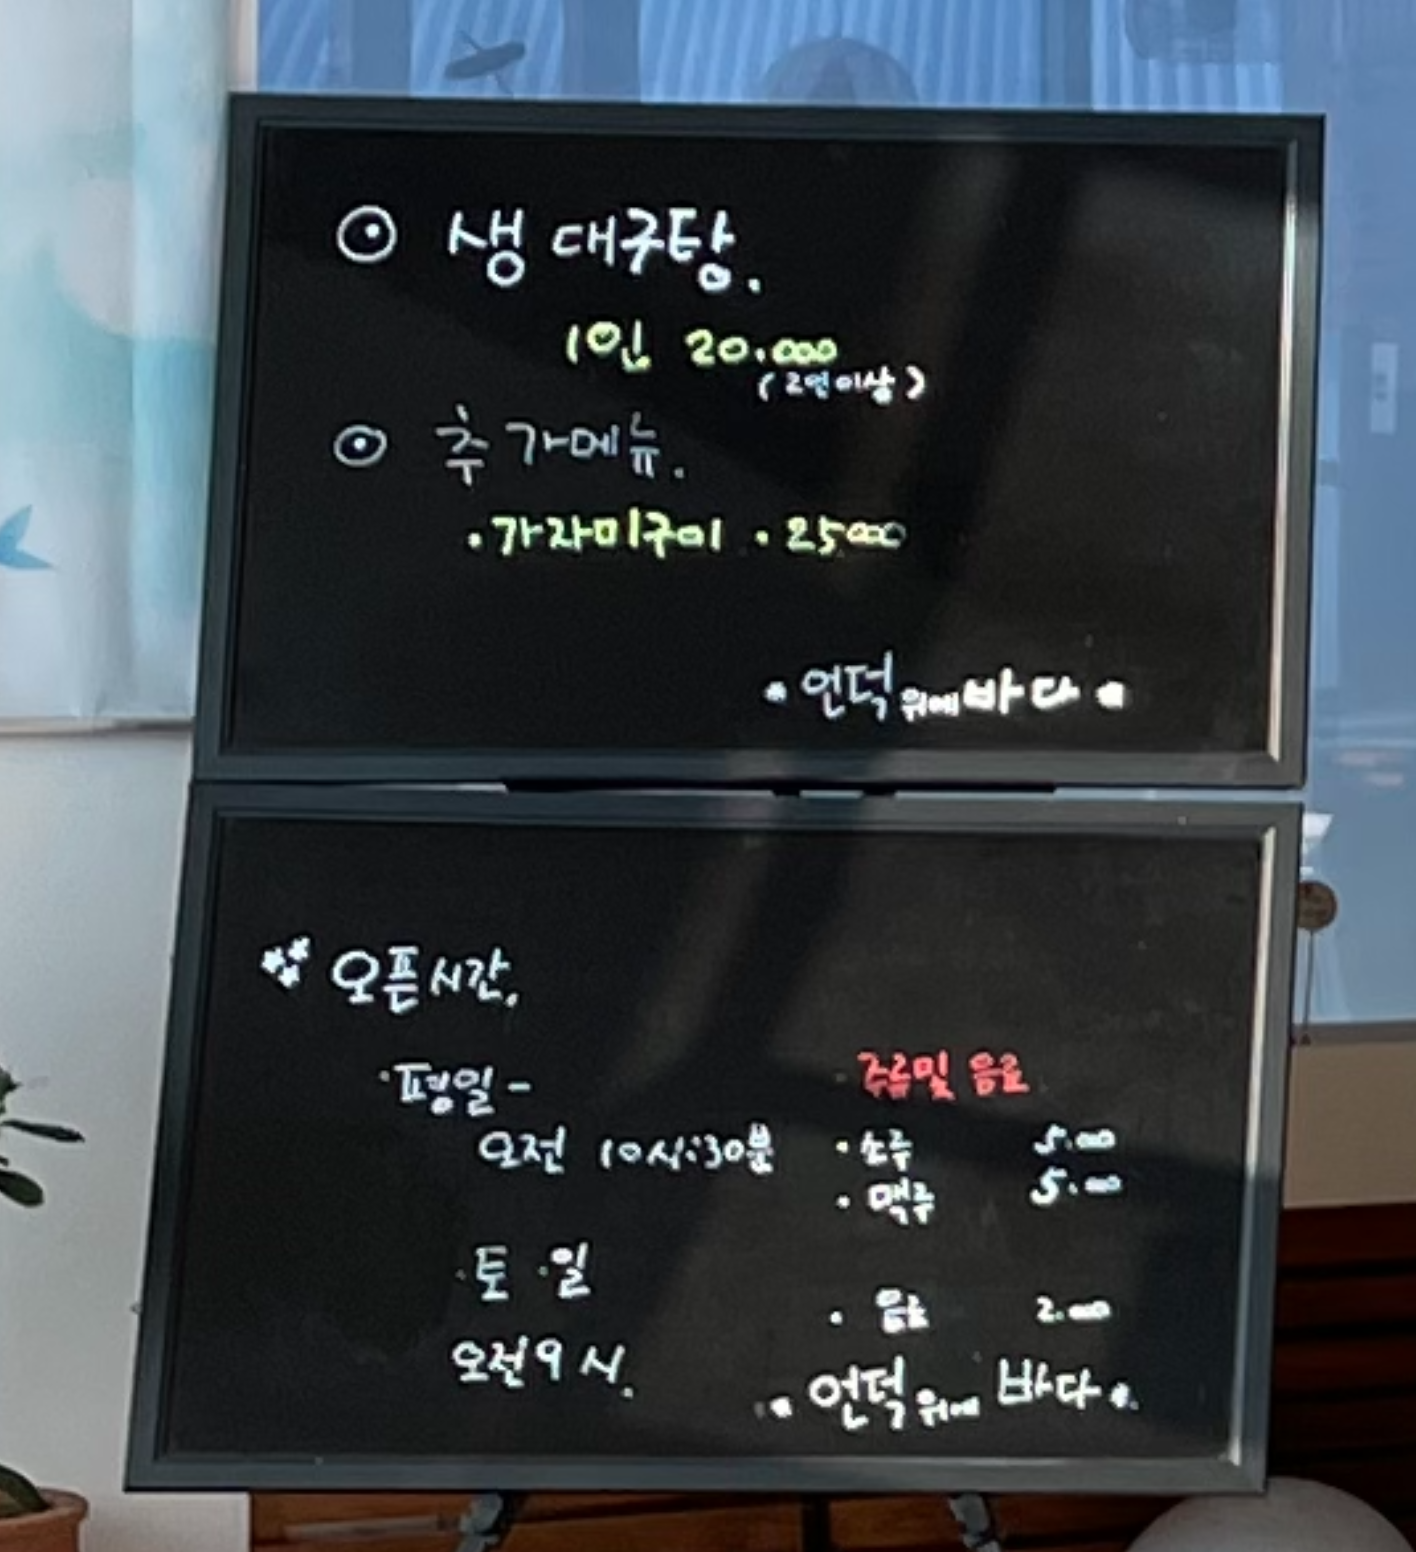 ⊙ 생 대구탕.
1인 20.000
(2인이상)
⊙ 추가메뉴.
·가자미구이 · 25000
· 언덕위에바다 ·
오픈시간.
·평일-
오전 10시:30분
·토·일
오전9시.
주류및 음료
·소주 5.000
·맥주 5.000
·음료 2.000
· 언덕위에 바다 ·